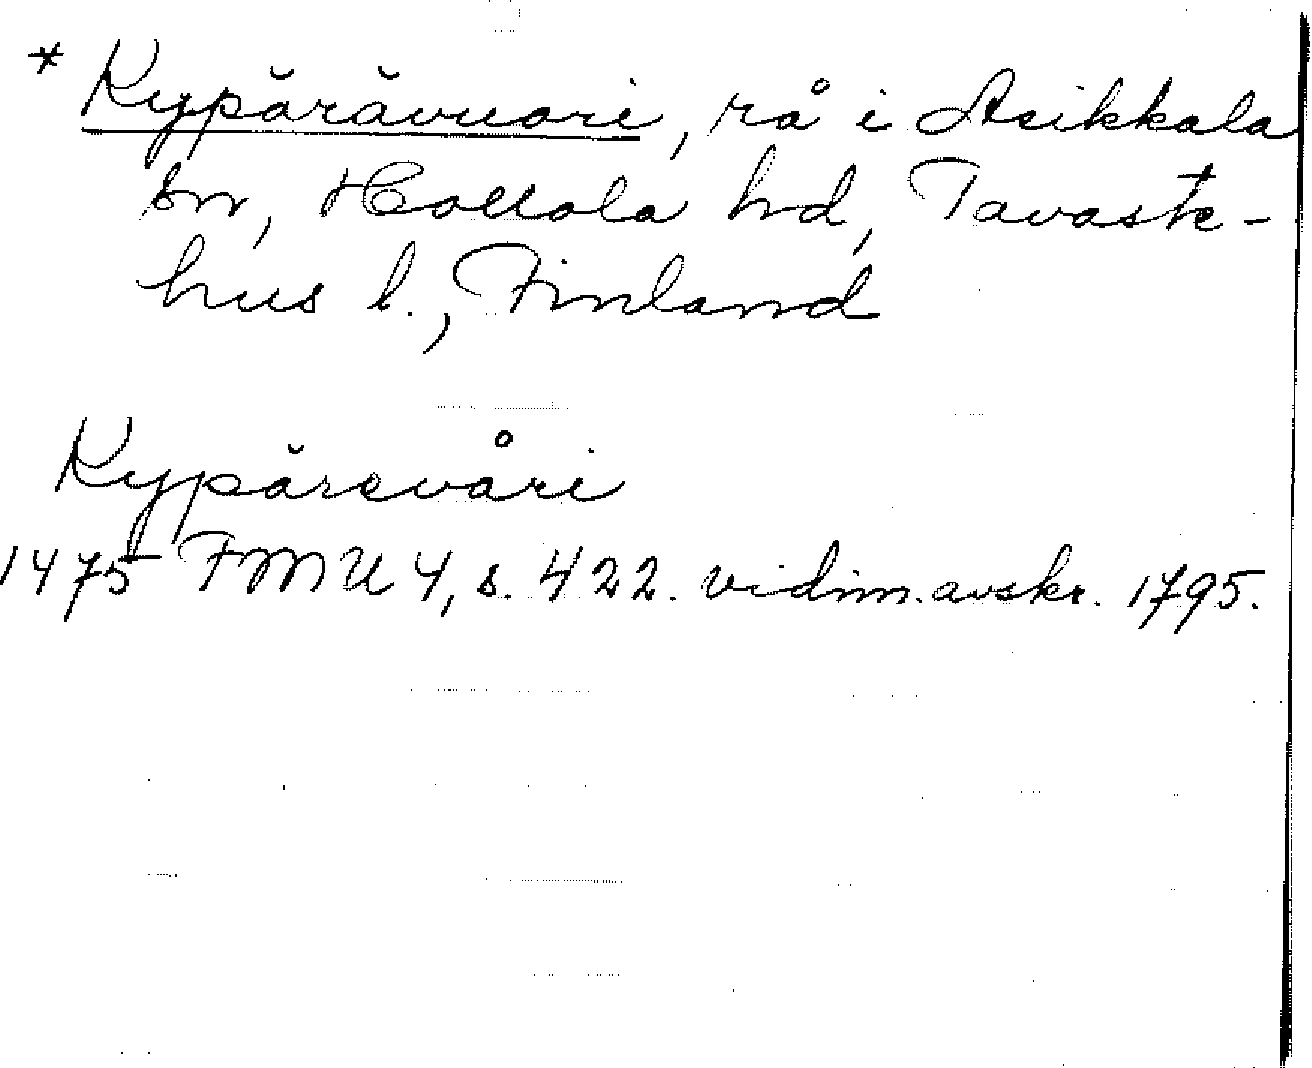 * Kypärävuori, rå i Asikkala
sn, Hollola hd, Tavaste-
hus l., Finland
Kypärevåri
1475 FMU 4, s. 422. vidim. avskr. 1795.